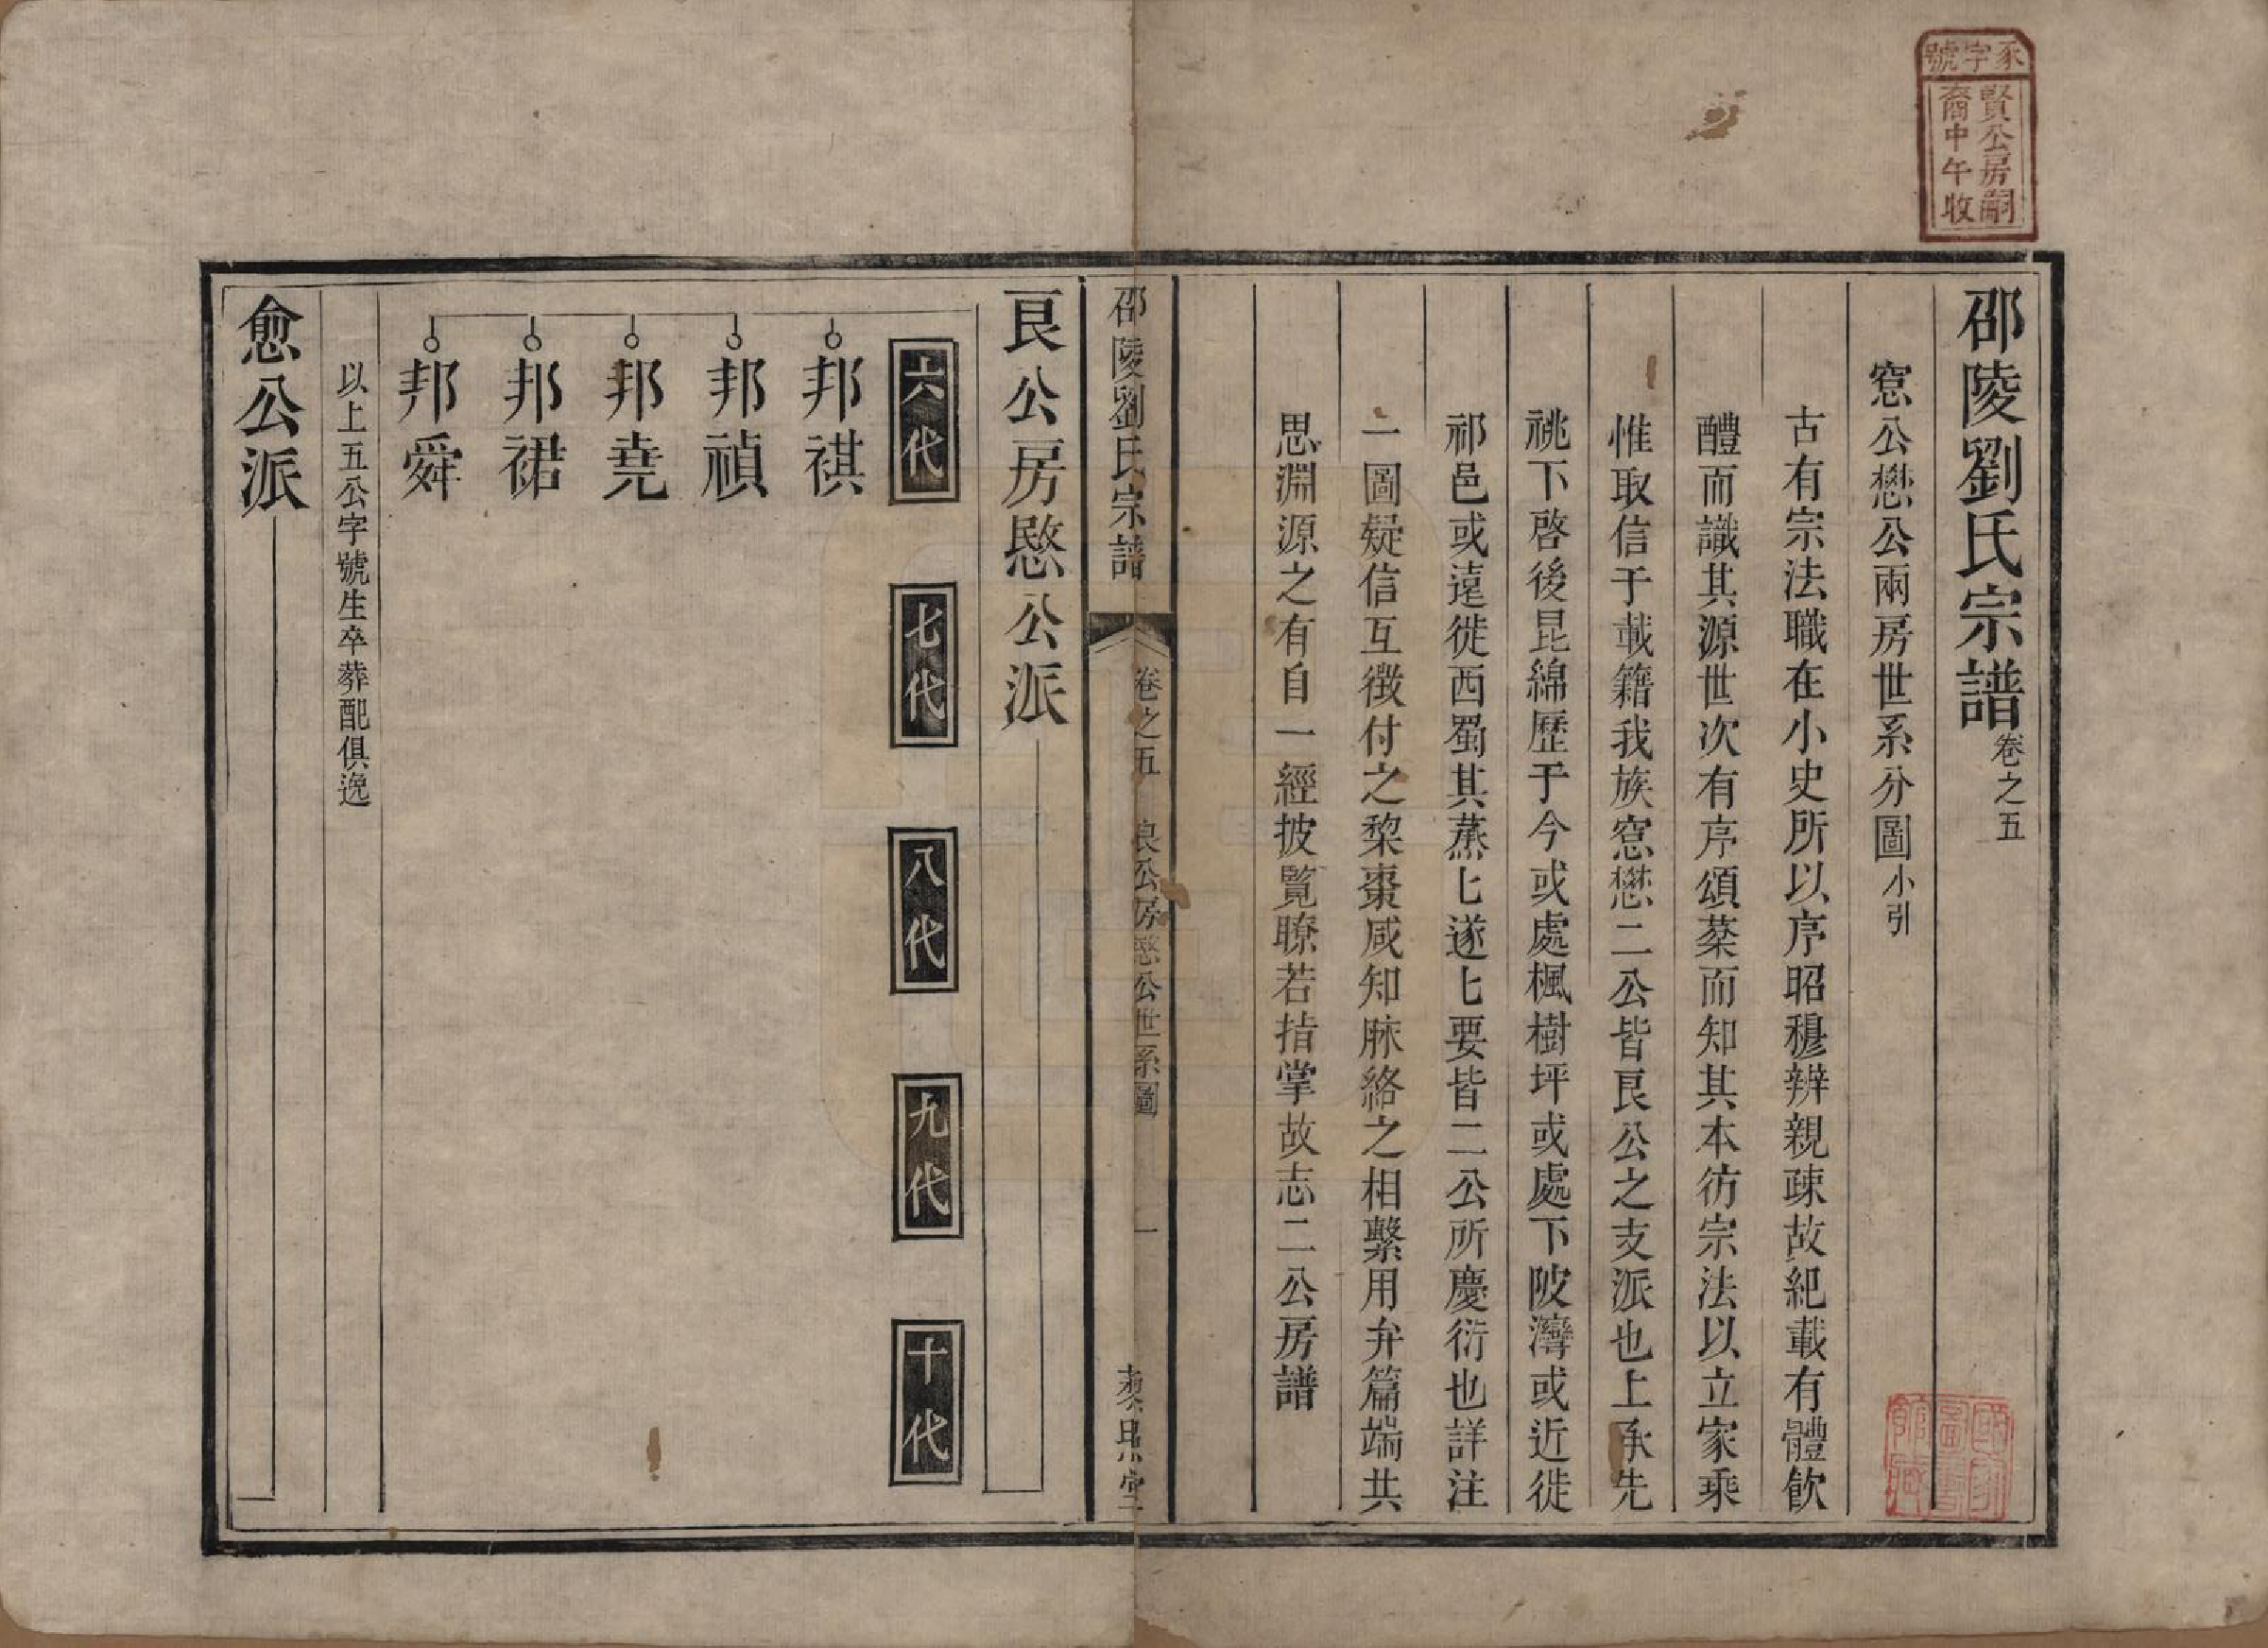 豕字號
賢公房嗣
裔中午收
邵陵劉氏宗譜卷之五
窓公懋公兩房世系分圖小引
古有宗法職在小史所以序昭穆辨親疎故紀載有體飲
醴而識其源世次有序頌蘃而知其本彷宗法以立家乘
惟取信于載籍我族窓懋二公皆艮公之支派也上承先
祧下啓後昆綿歷于今或處楓樹坪或處下陂灣或近徙
祁邑或遠徙西蜀其蒸匕遂匕要皆二公所慶衍也詳注
一圖疑信互徵付之棃棗咸知脉絡之相繫用弁篇端共
思淵源之有自一經披覽瞭若指掌故志二公房譜
邵陵劉氏宗譜
卷之五
艮公房愍公世系圖
一
藜照堂
艮公房愍公派
六代
七代
八代
九代
十代
邦祺
邦禎
邦堯
邦裙
邦舜
以上五公字號生卒葬配俱逸
愈公派